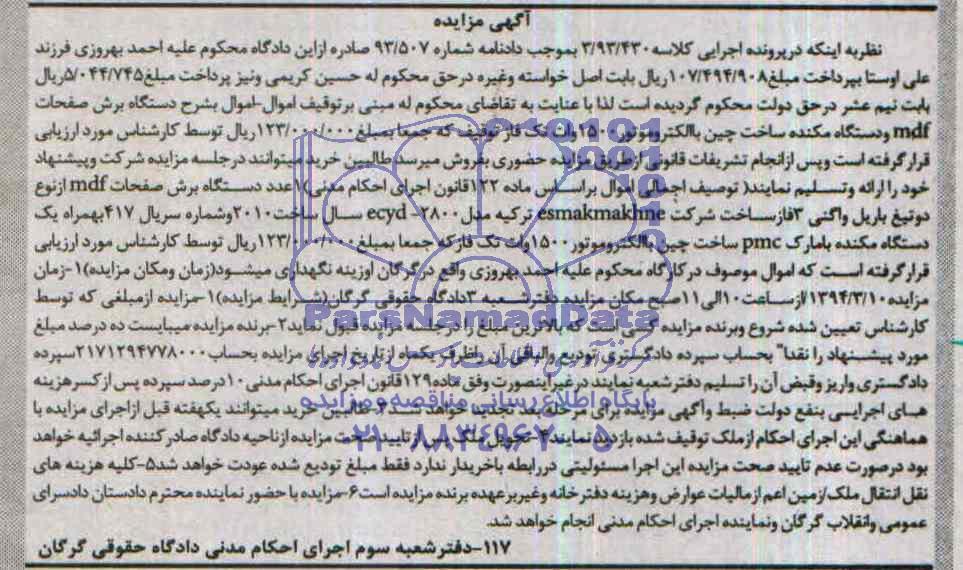 آگهی مزایده
نظربه اینکه درپرونده اجرایی کلاسه ۳/۹۳/۴۳۰ بموجب دادنامه شماره ۹۳/۵۰۷ صادره ازاین دادگاه محکوم علیه احمد بهروزی فرزند
علی اوستا بپرداخت مبلغ۱۰۷/۴۹۴/۹۰۸ریال بابت اصل خواسته وغیره درحق محکوم له حسین کریمی ونیز پرداخت مبلغ۵/۰۴۴/۷۴۵ریال
بابت نیم عشر درحق دولت محکوم گردیده است لذا با عنایت به تقاضای محکوم له مبنی برتوقیف اموال-اموال بشرح دستگاه برش صفحات
mdf ودستگاه مکنده ساخت چین باالکتروموتور۱۵۰۰وات تک فاز توقیف که جمعا بمبلغ۱۲۳/۰۰۰/۰۰۰ریال توسط کارشناس مورد ارزیابی
قرارگرفته است وپس ازانجام تشریفات قانونی ازطریق مزایده حضوری بفروش میرسد طالبین خرید میتوانند درجلسه مزایده شرکت وپیشنهاد
خود را ارائه وتسلیم نمایند( توصیف اجمالی اموال براساس ماده ۱۲۲قانون اجرای احکام مدنی)۱عدد دستگاه برش صفحات mdf ازنوع
دوتیغ باریل واگنی ۳فازساخت شرکت esmakmakhne ترکیه مدل۲۸۰۰- ecyd سال ساخت۲۰۱۰وشماره سریال ۴۱۷بهمراه یک
دستگاه مکنده بامارک pmc ساخت چین باالکتروموتور۱۵۰۰وات تک فازکه جمعا بمبلغ۱۲۳/۰۰۰/۰۰۰ریال توسط کارشناس مورد ارزیابی
قرارگرفته است که اموال موصوف درکارگاه محکوم علیه احمد بهروزی واقع درگرگان اوزینه نگهداری میشود(زمان ومکان مزایده)۱-زمان
مزایده۱۳۹۴/۳/۱۰ازساعت۱۰الی۱۱صبح مکان مزایده دفترشعبه ۳دادگاه حقوقی گرگان(شرایط مزایده)۱-مزایده ازمبلغی که توسط
کارشناس تعیین شده شروع وبرنده مزایده کسی است که بالاترین مبلغ را درجلسه مزایده قبول نماید۲-برنده مزایده میبایست ده درصد مبلغ
مورد پیشنهاد را نقدا" بحساب سپرده دادگستری تودیع والباقی آن راظرف یکماه ازتاریخ اجرای مزایده بحساب۲۱۷۱۲۹۴۷۷۸۰۰۰سپرده
دادگستری واریز وقبض آن را تسلیم دفترشعبه نمایند درغیراینصورت وفق ماده۱۲۹قانون اجرای احکام مدنی ۱۰درصد سپرده پس از کسرهزینه
های اجرایی بنفع دولت ضبط وآگهی مزایده برای مرحله بعد تجدید خواهد شد۳-طالبین خرید میتوانند یکهفته قبل ازاجرای مزایده با
هماهنگی این اجرای احکام ازملک توقیف شده بازدید نمایند۴-تحویل ملک پس ازتایید صحت مزایده ازناحیه دادگاه صادرکننده اجرائیه خواهد
بود درصورت عدم تایید صحت مزایده این اجرا مسئولیتی دررابطه باخریدار ندارد فقط مبلغ تودیع شده عودت خواهد شد۵-کلیه هزینه های
نقل انتقال ملک/زمین اعم ازمالیات عوارض وهزینه دفترخانه وغیربرعهده برنده مزایده است۶-مزایده با حضور نماینده محترم دادستان دادسرای
عمومی وانقلاب گرگان ونماینده اجرای احکام مدنی انجام خواهد شد.
۱۱۷-دفترشعبه سوم اجرای احکام مدنی دادگاه حقوقی گرگان
ParsNamadData
پایگاه اطلاع رسانی مناقصه و مزایده
۰۲۱-۸۸۳۴۹۶۲۰-۵